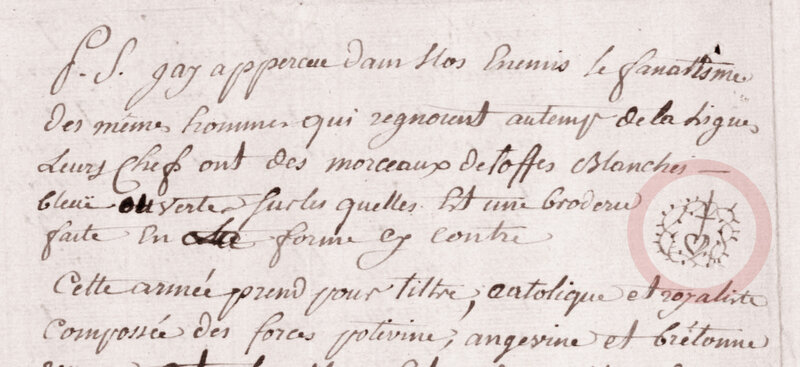 P. S. jay apperceu dans Nos Enemis le fanatisme
des mêmes hommes qui regnoient au temps de la Ligue,
Leurs Chefs ont des morceaux detoffes Blanches –
bleuë ou vertes sur les quelles Est une broderie
faite En forme cy contre
Cette armée prend pour tiltre, catolique et royaliste
composée des forces potevine, angevine et brétonne